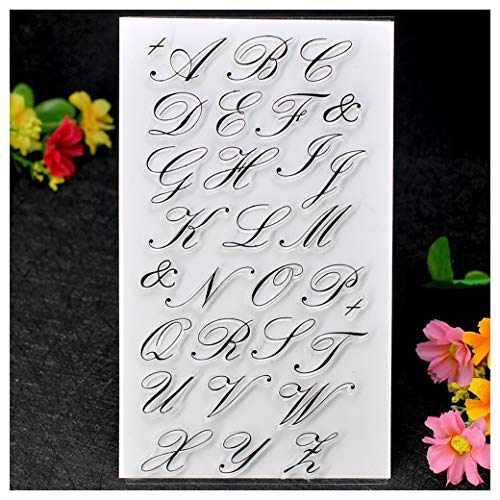 + A B C
D E F &
G H I J
K L M
& N O P +
Q R S T
U V W
X Y Z